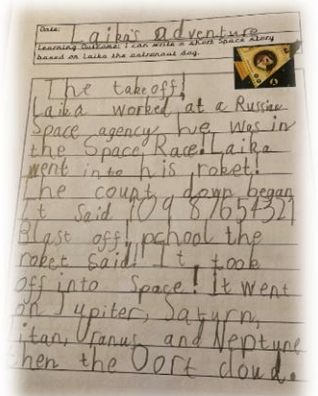 Date: Laika's adventure
Learning Outcome: I can write a short space story
based on Laika the astronaut dog.
The takeoff!
Laika worked at a Russian
Space agency he was in
the Space Race! Laika
went into his roket!
The count down began
It said 10 9 8 7 6 5 4 3 2 1
Blast off! pchool the
roket said! It took
off into space! It went
on Jupiter, Saturn,
Titan, Uranus and Neptune
then the Oort cloud.